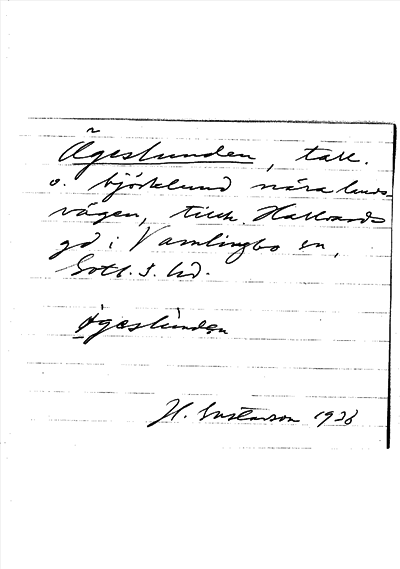 Ägeslunden, tall.
o. björklund nära lands
vägen, tillh. Hallvards
gd i Vamlingbo sn,
Gotl. S. hd.
ägeslunden
H. Gustavson 1928